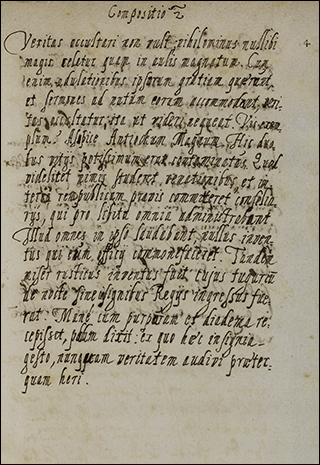 Compositio 2
Veritas occultari non vult, nihilominus nullibi
magis celatur quam in aulis magnatum. Cum
enim adulationibus ipsorum gratiam quærunt,
et sermones ad nutum eorum accommodant, veri-
tas occultatur, ita ut videri nequeat. Vis exem-
plum? Aspice Antiochum Magnum. Hic duo-
bus vitijs potissimum erat contaminatus. Quod
videlicet nimis studeret venationibus, et in-
terea rempublicam pravis committeret consilia-
rijs, qui pro libitu omnia administrabant.
Illud omnes in ipso laudabant, nullus inven-
tus qui eum officij commonefaceret. Tandem
miser rusticus inventus fuit cujus tugurium
de nocte sine insignibus Regijs ingressus fue-
rat. Mane cum purpuram et diadema re-
cepisset, palam dixit: ex quo hæc insignia
gesto, nunquam veritatem audivi præter-
quam heri.